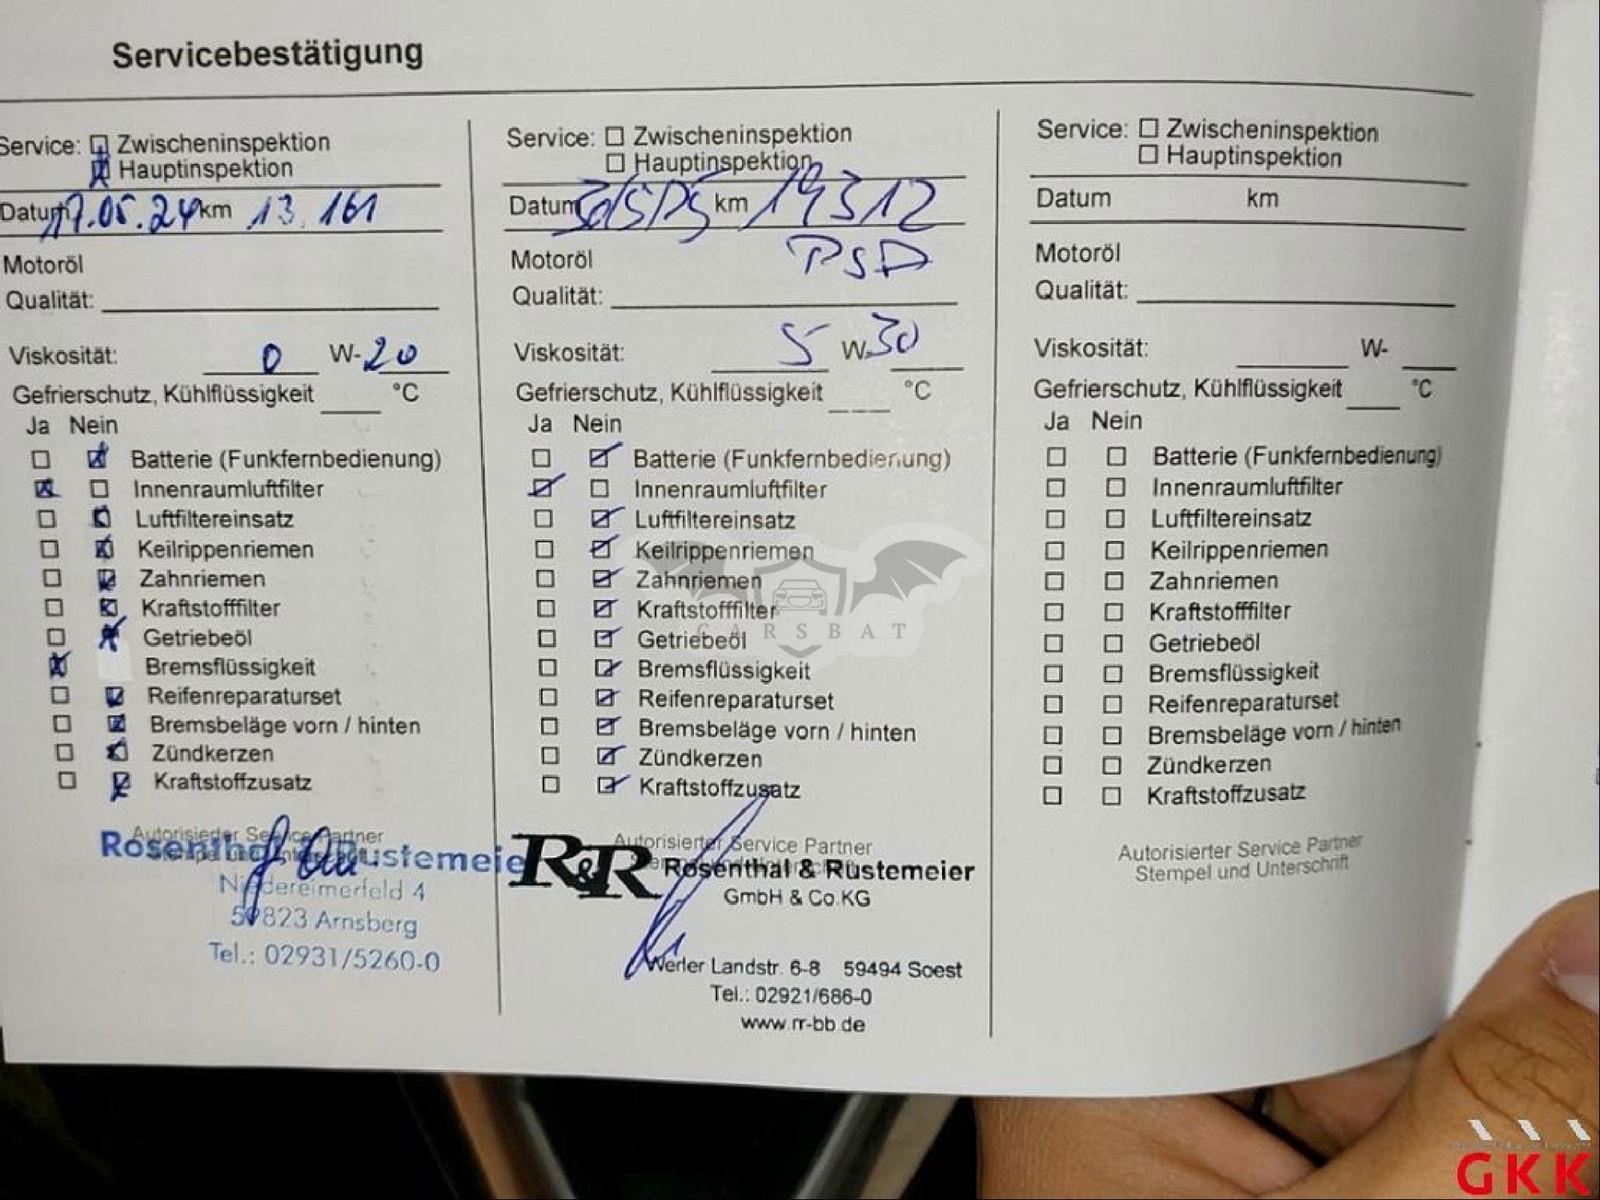 Servicebestätigung
Service: Zwischeninspektion
Hauptinspektion
Datum 17.05.24 km 13.161
Motoröl
Qualität:
Viskosität: 0 W-20
Gefrierschutz, Kühlflüssigkeit °C
Ja Nein
Batterie (Funkfernbedienung)
Innenraumluftfilter
Luftfiltereinsatz
Keilrippenriemen
Zahnriemen
Kraftstofffilter
Getriebeöl
Bremsflüssigkeit
Reifenreparaturset
Bremsbeläge vorn / hinten
Zündkerzen
Kraftstoffzusatz
Autorisierter Service Partner
Rosenthal & Rustemeier
Niedereimerfeld 4
59823 Arnsberg
Tel.: 02931/5260-0
Service: Zwischeninspektion
Hauptinspektion
Datum km 19312
Motoröl PSA
Qualität:
Viskosität: 5 W-30
Gefrierschutz, Kühlflüssigkeit °C
Ja Nein
Batterie (Funkfernbedienung)
Innenraumluftfilter
Luftfiltereinsatz
Keilrippenriemen
Zahnriemen
Kraftstofffilter
Getriebeöl
Bremsflüssigkeit
Reifenreparaturset
Bremsbeläge vorn / hinten
Zündkerzen
Kraftstoffzusatz
Autorisierter Service Partner
R&R Rosenthal & Rustemeier
GmbH & Co.KG
Werler Landstr. 6-8 59494 Soest
Tel.: 02921/686-0
www.rr-bb.de
Service: Zwischeninspektion
Hauptinspektion
Datum km
Motoröl
Qualität:
Viskosität: W-
Gefrierschutz, Kühlflüssigkeit °C
Ja Nein
Batterie (Funkfernbedienung)
Innenraumluftfilter
Luftfiltereinsatz
Keilrippenriemen
Zahnriemen
Kraftstofffilter
Getriebeöl
Bremsflüssigkeit
Reifenreparaturset
Bremsbeläge vorn / hinten
Zündkerzen
Kraftstoffzusatz
Autorisierter Service Partner
Stempel und Unterschrift
CARSBAT
GKK